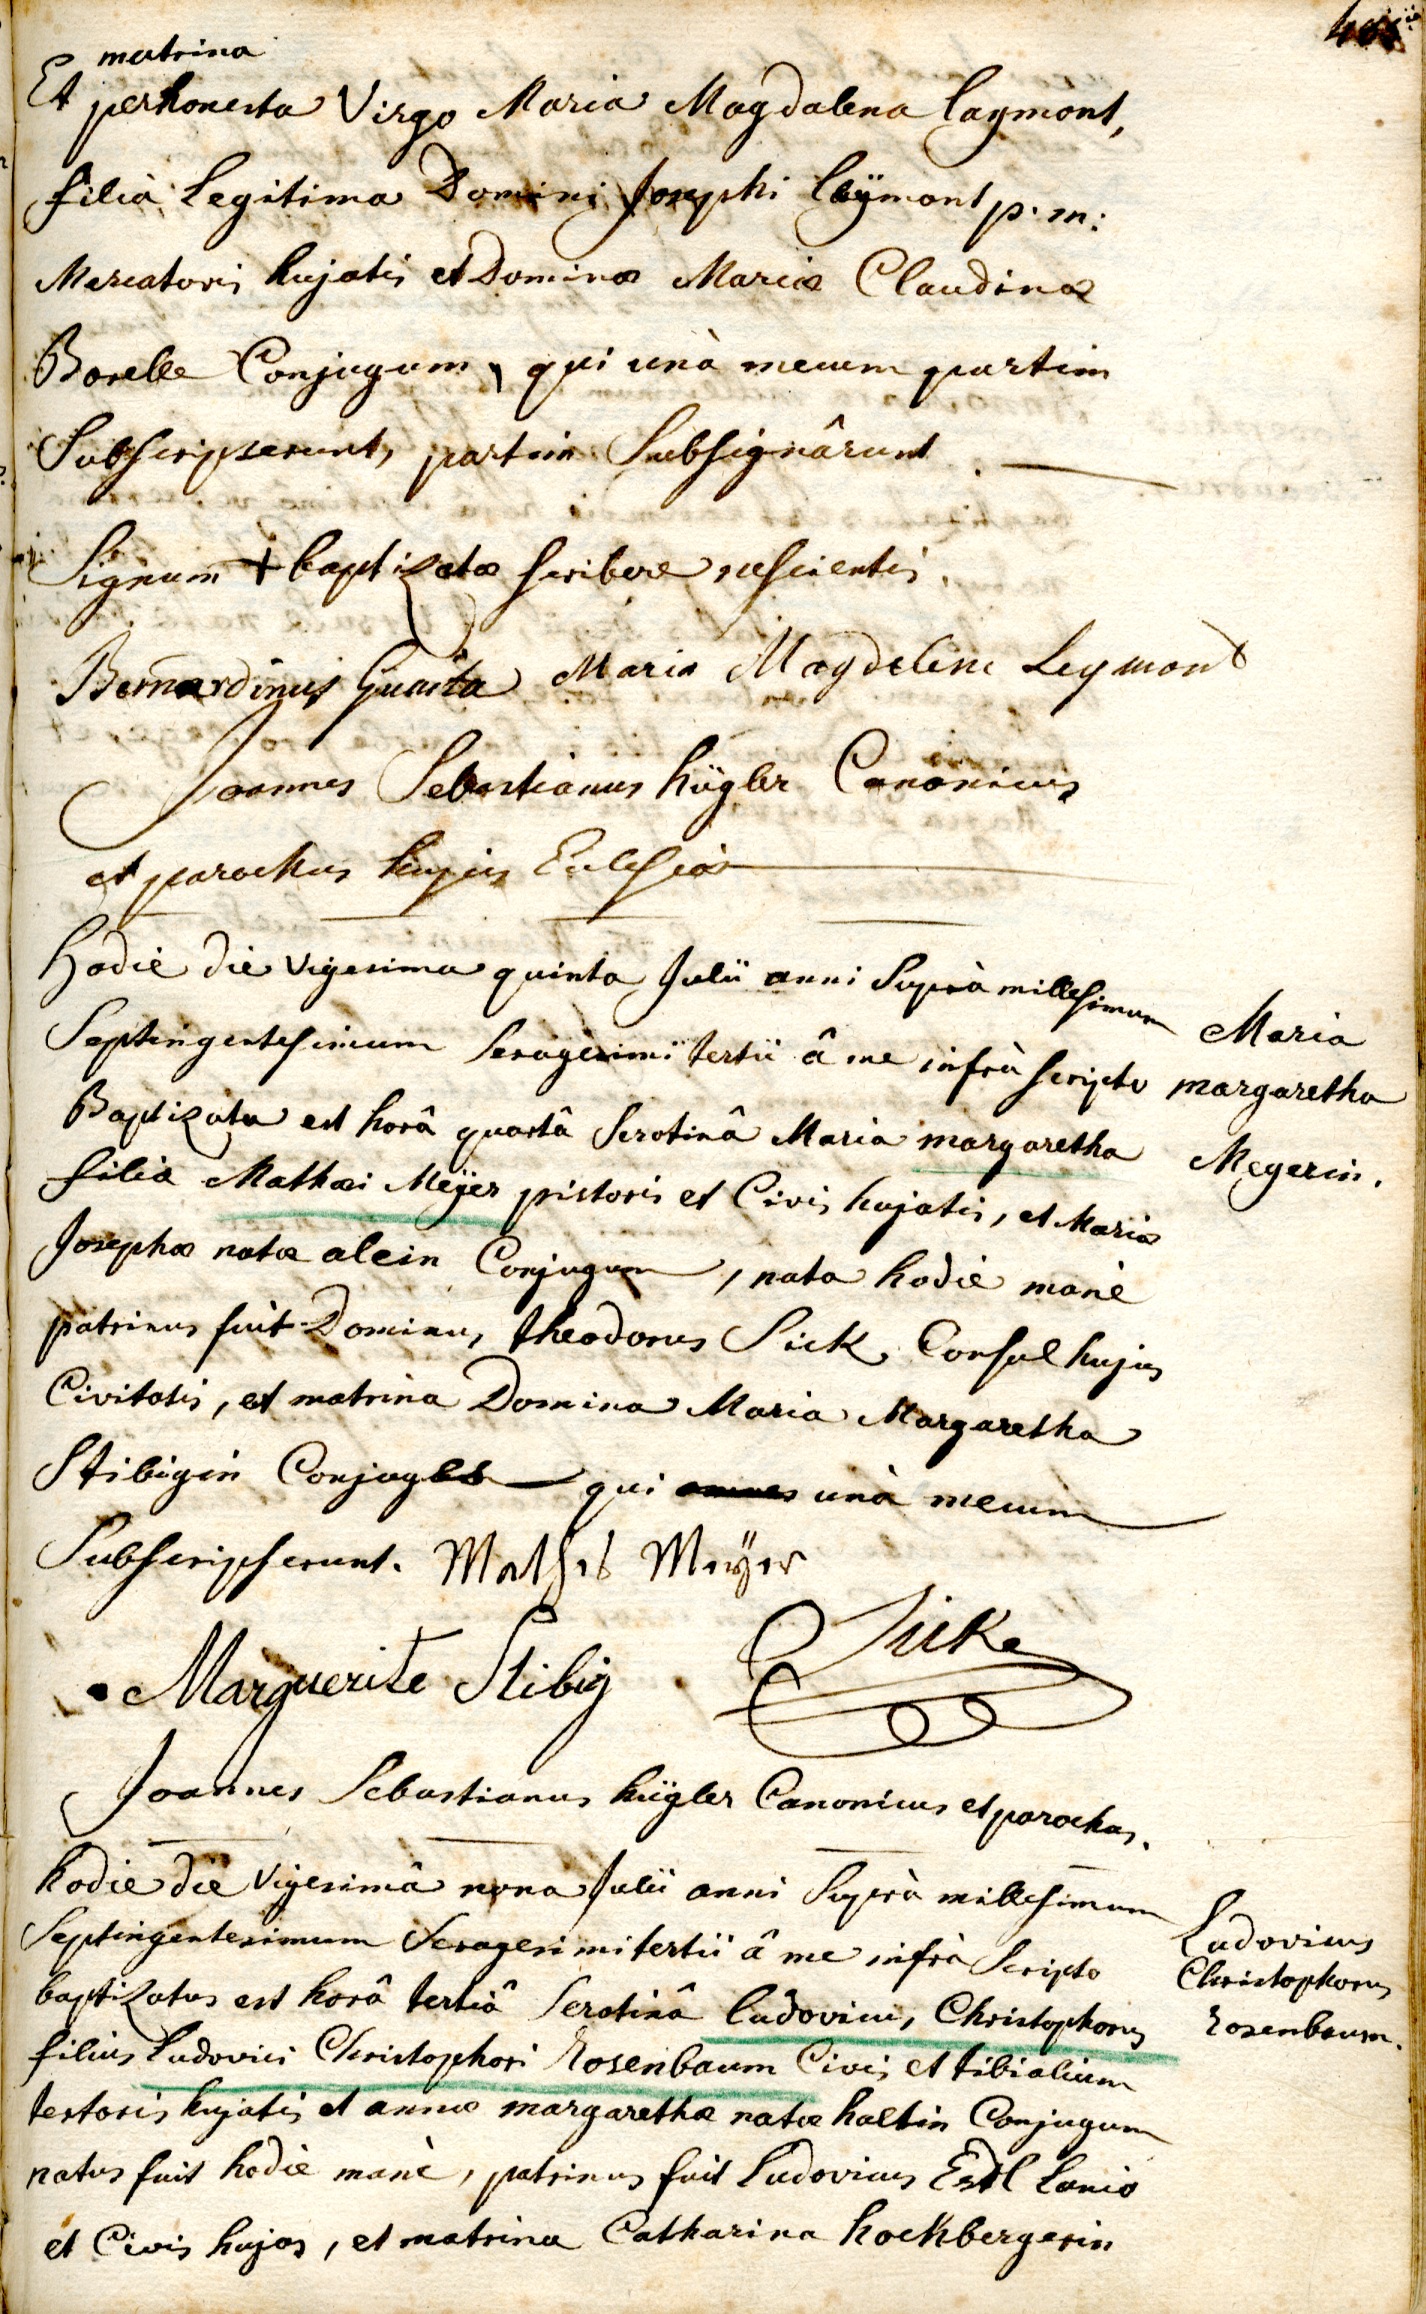 matrina
Et perhonesta Virgo Maria Magdalena Laymont,
filia Legitima Domini Josephi Laÿmont p. m:
Mercatoris hujatis et Dominæ Mariæ Claudinæ
Borelle Conjugum, qui unà mecum partim
Subscripserunt, partim Subsignârunt.
Signum + baptizatæ scribere nescientis.
Bernardinus Guaita Maria Magdelene Leymont
Joannes Sebastianus Kügler Canonicus
et parochus hujus Ecclesiæ
Hodie die Vigesima quinta Julii anni Suprà millesimum
Septingentesimum Sexagesimi tertii â me infrà scripto
Baptizata est horâ quartâ Serotinâ Maria margaretha
filia Mathæi Meÿer pistoris et Civis hujatis, et Mariæ
Josephæ natæ alein Conjugum, nata hodiè manè
patrinus fuit Dominus theodorus Sick Consul hujus
Civitatis, et matrina Domina Maria Margaretha
Stibigin Conjuges qui unà mecum
Subscripserunt. Mathis Meÿer
Marguerite Stibig Sick
Joannes Sebastianus Kügler Canonicus et parochus.
Maria
margaretha
Meyerin.
hodie die Vigesimâ nona Julii anni Suprà millesimum
Septingentesimum Sexagesimi tertii â me infrà Scripto
baptizatus est horâ tertiâ Serotinâ Ludovicus Christophorus
filius Ludovici Christophori Rosenbaum Civis et tibialium
textoris hujatis et annæ margarethæ natæ haltin Conjugum
natus fuit hodiè manè, patrinus fuit Ludovicus Estel Lanio
et Civis hujas, et matrina Catharina hochbergerin
Ludovicus
Christophorus
Rosenbaum.